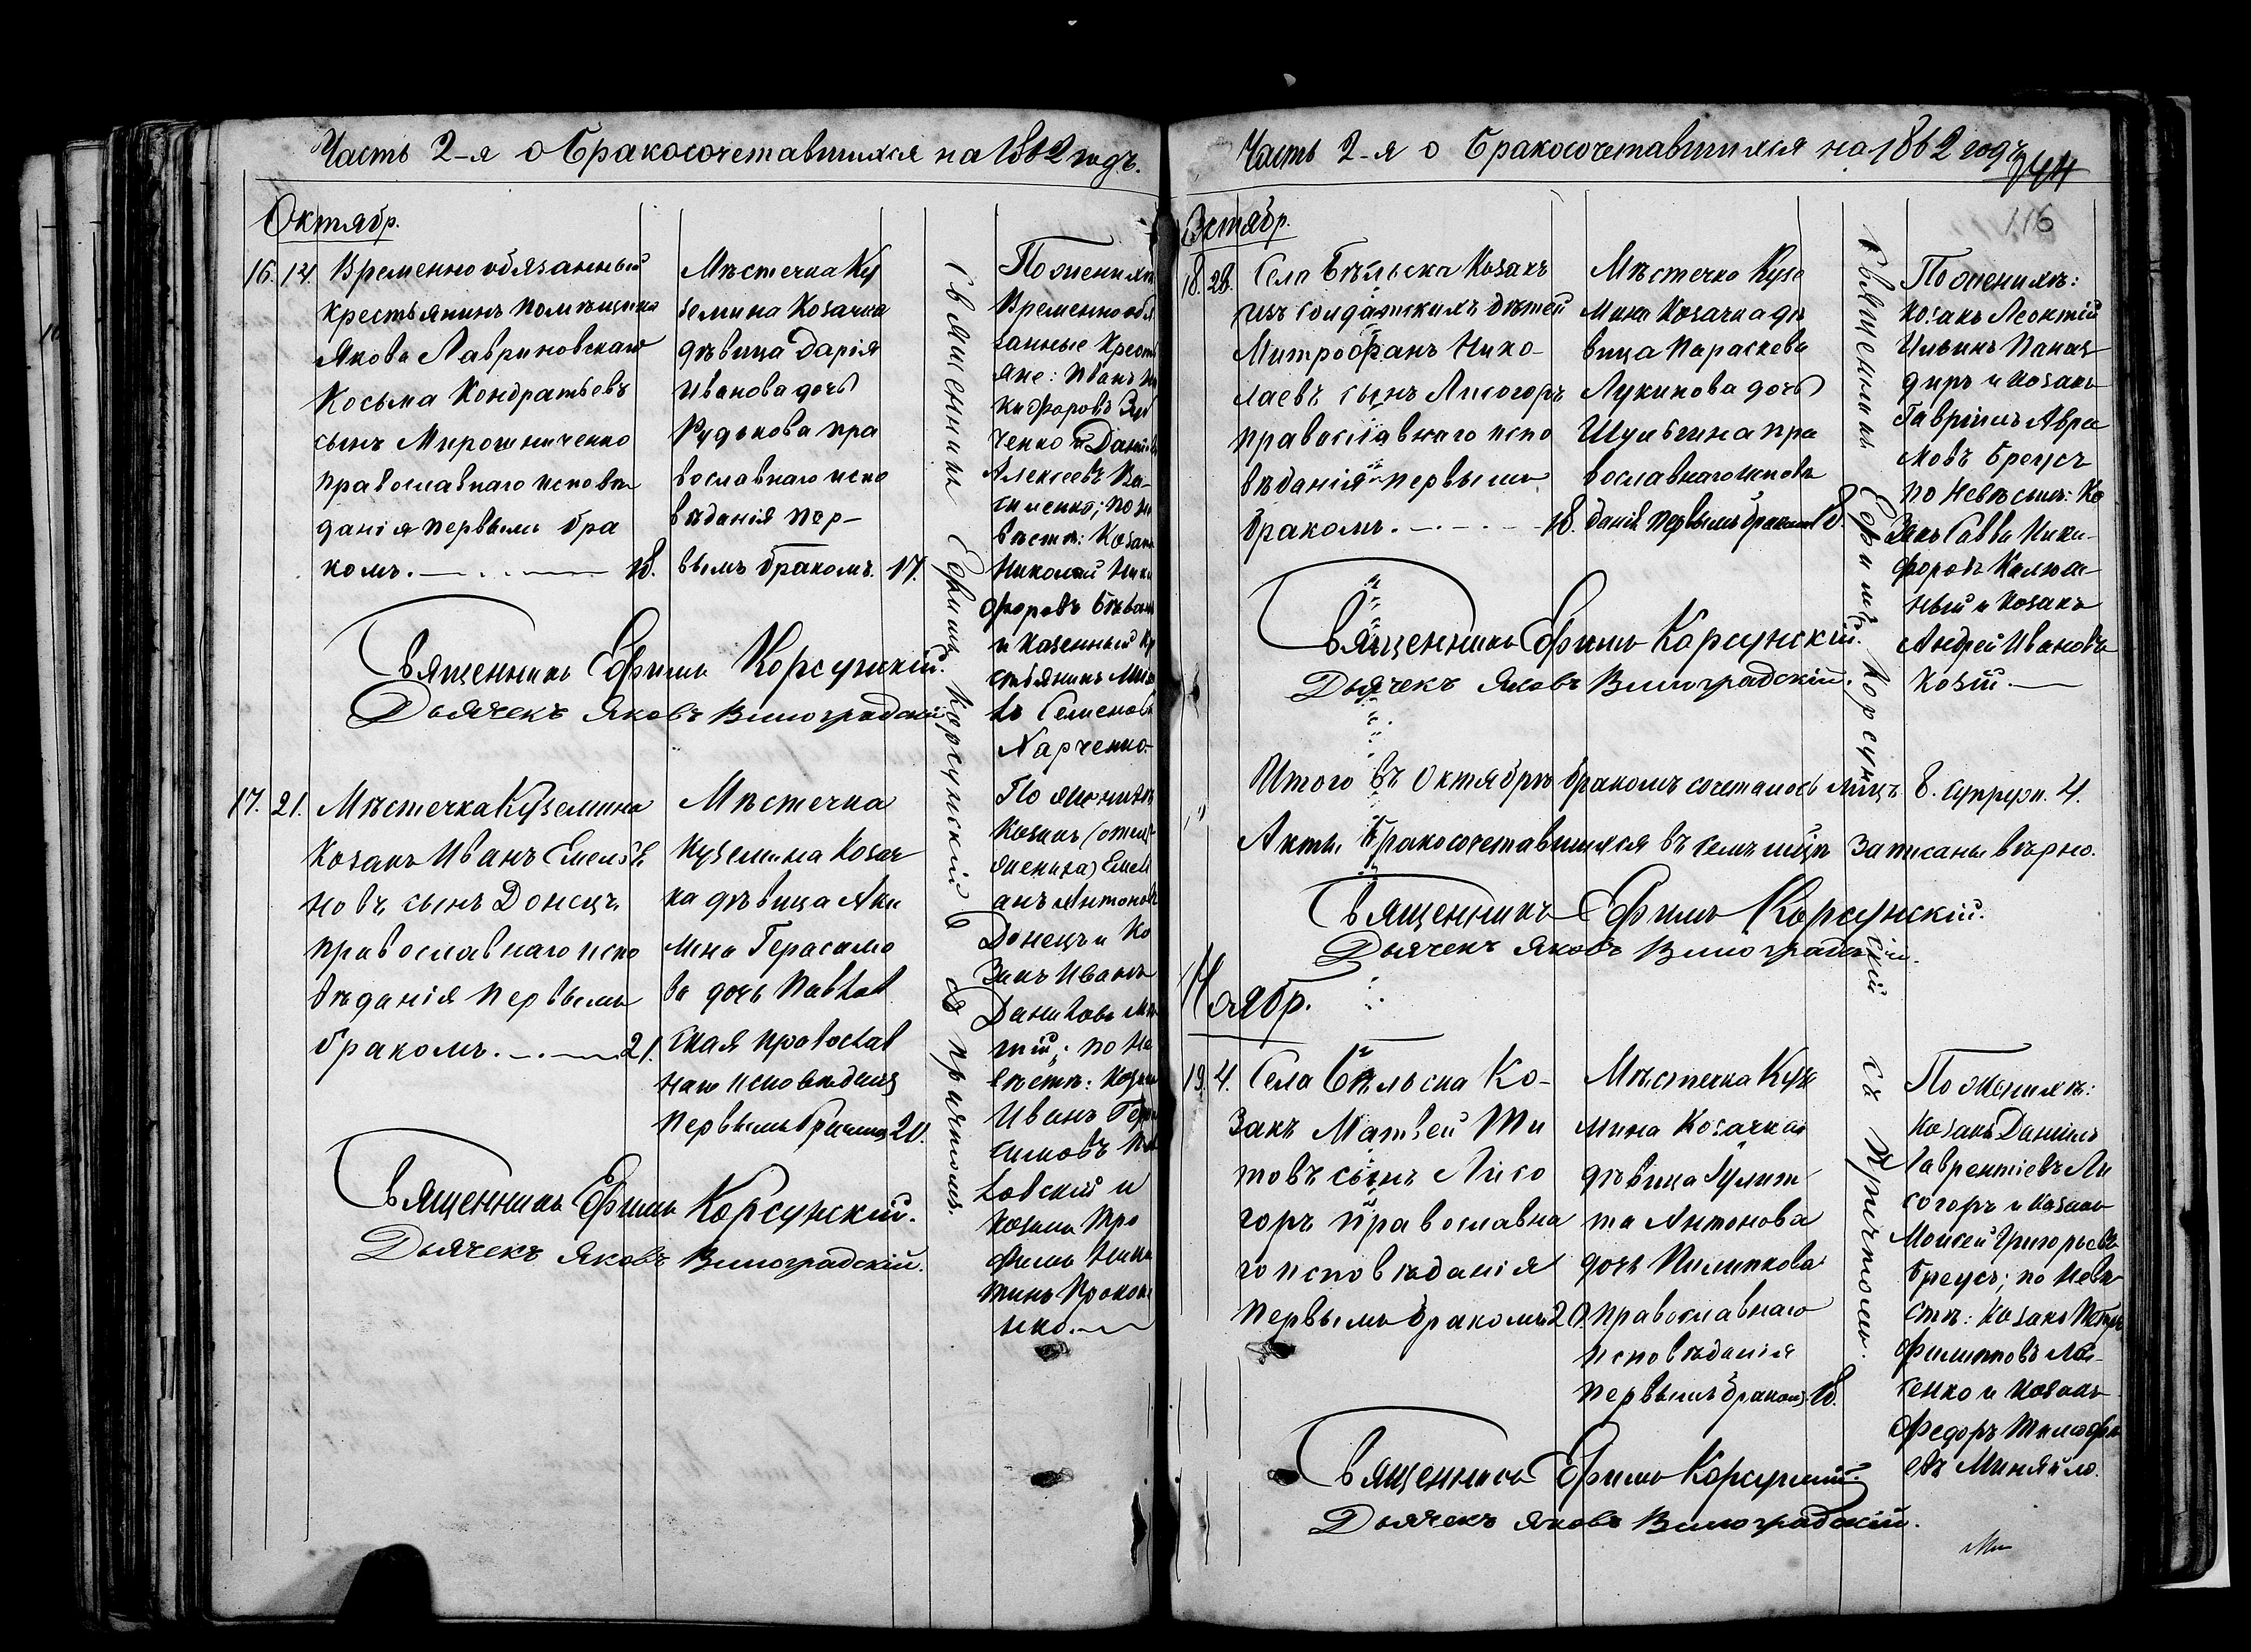 Часть 2-я о Бракосочетавшихся на 1862 годъ.
Октябр.
16. 14. Временно обязанный
крестьянинъ помѣщика
Якова Лавриновскаго
Косьма Кондратьевъ
сынъ Мирошниченко
православнаго исповѣ
данія первымъ бра
комъ. 18.
Мѣстечка Ку
земина Козачка
дѣвица Дарія
Иванова дочь
Рудькова пра
вославнаго испо
вѣданія пер-
вымъ бракомъ. 17.
Священникъ Ефимъ Корсунскій съ причтомъ.
По женихѣ
Временно обя
занные Кресть
яне: Иванъ Ни
кифоровъ
ченко и
Алексеевъ Ва-
силенко; по не
вѣстѣ: Козакъ
Николай Ники
форовъ
и Казенный Кр
стьянинъ
Семеновъ
Харченко.
Священникъ Ефимъ Корсунскій.
Дьячекъ Яковъ Виноградскій
17. 21. Мѣстечка Куземина
Козакъ Иванъ Емелья
новъ сынъ Донецъ
православнаго испо
вѣданія первымъ
бракомъ. 21.
Мѣстечка
Куземина Козач
ка дѣвица Аки
лина Герасимо
ва дочь Павлов
ская православ
наго исповѣданія
первымъ бракомъ 20.
По женихѣ
Козакъ
Емели
анъ Антоновъ
Донецъ и Ко
закъ Иванъ
Даниловъ
по не
вѣстѣ: Козакъ
Иванъ Гера
симовъ Пав
ловскій и
Козакъ Тро
фимъ Ники
тинъ Прокопе
нко.
Священникъ Ефимъ Корсунскій.
Дьячекъ Яковъ Виноградскій.
Часть 2-я о Бракосочетавшихся на 1862 годъ
244
116
Октябр.
18. 28. Села Бѣльска Козакъ
изъ солдатскихъ дѣтей
Митрофанъ Нико-
лаевъ сынъ Лисогоръ
православнаго испо
вѣданія первымъ
бракомъ. 18.
Мѣстечка Кузе
мина Козачка дѣ
вица Параскева
Лукинова дочь
Шульгина пра
вославнаго исповѣ
данія первымъ бракомъ 18.
Священникъ Ефимъ Корсунскій съ Причтомъ.
По женихѣ:
Козакъ Леонтій
Ильинъ Панац
диръ и Козакъ
Гавріилъ Авра
мовъ Бреусъ
по Невѣстѣ: Ко
закъ Савва Ники-
форовъ
ный и Козакъ
Андрей Ивановъ
Козій.
Священникъ Ефимъ Корсунскій.
Дьячекъ Яковъ Виноградскій.
Итого въ Октябрѣ бракомъ сочеталось лицъ 8. супруж. 4.
Акты бракосочетавшихся въ семъ мцѣ записаны вѣрно.
Священникъ Ефимъ Корсунскій.
Дьячекъ Яковъ Виноградскій.
Ноябр.
19. 4. Села Бѣльска Ко-
закъ Матвей Ти
товъ сынъ Лисо
горъ православна
го исповѣданія
первымъ бракомъ 20.
Мѣстечка Кузе
мина Козачка
дѣвица Гулит
та Антонова
дочь Пилипкова
православнаго
исповѣданія
первымъ бракомъ 18.
По женихѣ:
Козакъ Даніилъ
Лаврентіевъ Ли
согоръ и Козакъ
Моисей Григорьевъ
Бреусъ; по Невѣ
стѣ: Козакъ Петръ
Филиповъ
сенко и Козакъ
Федоръ Тимофе
евъ Миняйло.
Священникъ Ефимъ Корсунскій.
Дьячекъ Яковъ Виноградскій.